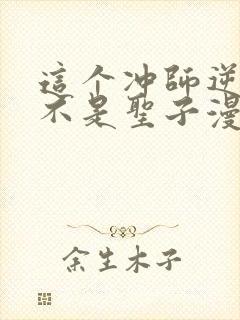 這个冲師逆
不是聖子漫
余生木子